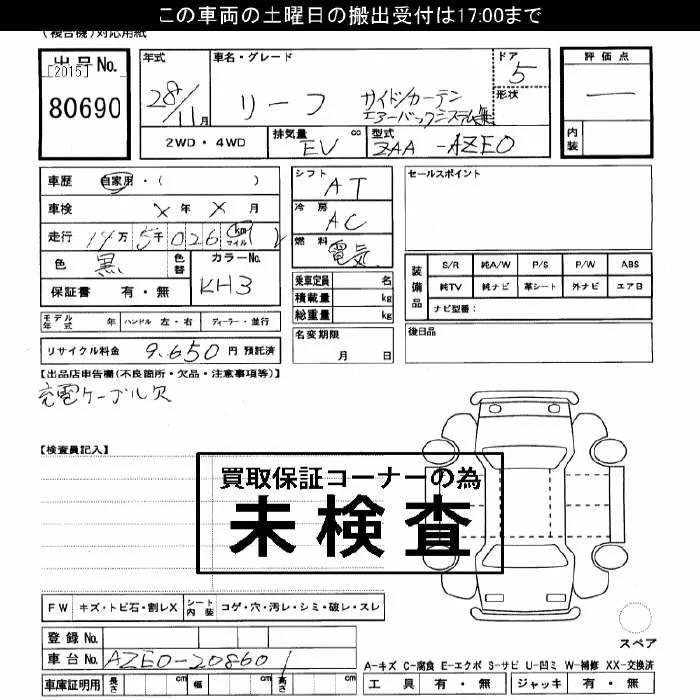 この車両の土曜日の搬出受付は17:00まで
(複合機)対応用紙
出品No.
[2015]
80690
年式 28/11月
車名・グレード リーフ サイド/カーテン
エアーバックシステム無
ドア 5
形状
2WD・4WD
排気量 EV cc
型式 ZAA-AZE0
評価点 ー
内装
車歴 自家用・( )
車検 × 年 × 月
走行 14万5千026 km マイル
色 黒 色替
カラーNo. KH3
保証書 有・無
シフト AT
冷房 AC
燃料 電気
乗車定員 名
積載量 kg
総重量 kg
名変期限
月 日
セールスポイント
装備品
S/R 純A/W P/S P/W ABS
純TV 純ナビ 革シート 外ナビ エアB
ナビ型番:
後日品
モデル年式 年 ハンドル 左・右 ディーラー・並行
リサイクル料金 9,650 円 預託済
【出品店申告欄(不良箇所・欠品・注意事項等)】
充電ケーブル欠
【検査員記入】
買取保証コーナーの為
未検査
FW キズ・トビ石・割レX シート内装 コゲ・穴・汚レ・シミ・破レ・スレ
登録No.
車台No. AZE0-208601
車庫証明用 長さ cm 幅 cm 高さ cm
スペア
A-キズ C-腐食 E-エクボ S-サビ U-凹ミ W-補修 XX-交換済
工具 有・無 ジャッキ 有・無